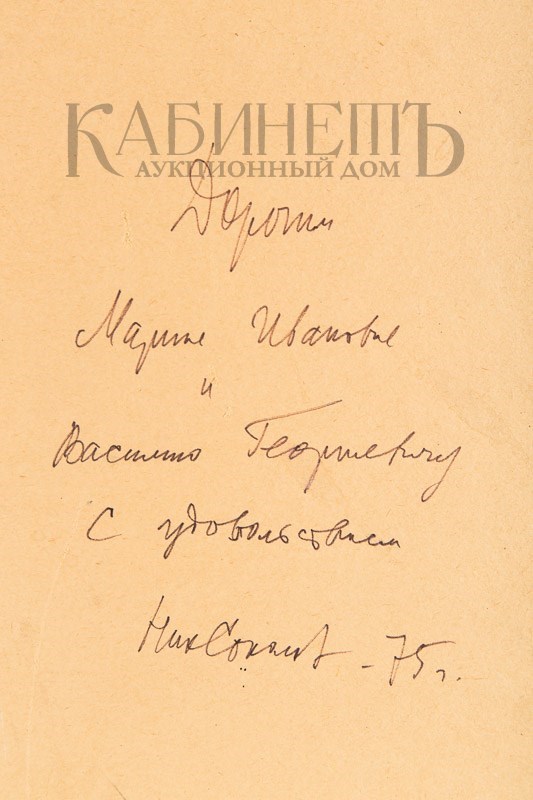 КАБИНЕТЪ
АУКЦИОННЫЙ ДОМ
Дорогим
Марине Ивановне
и
Василию Георгиевичу
С удовольствием
Ник Соколов - 75 г.